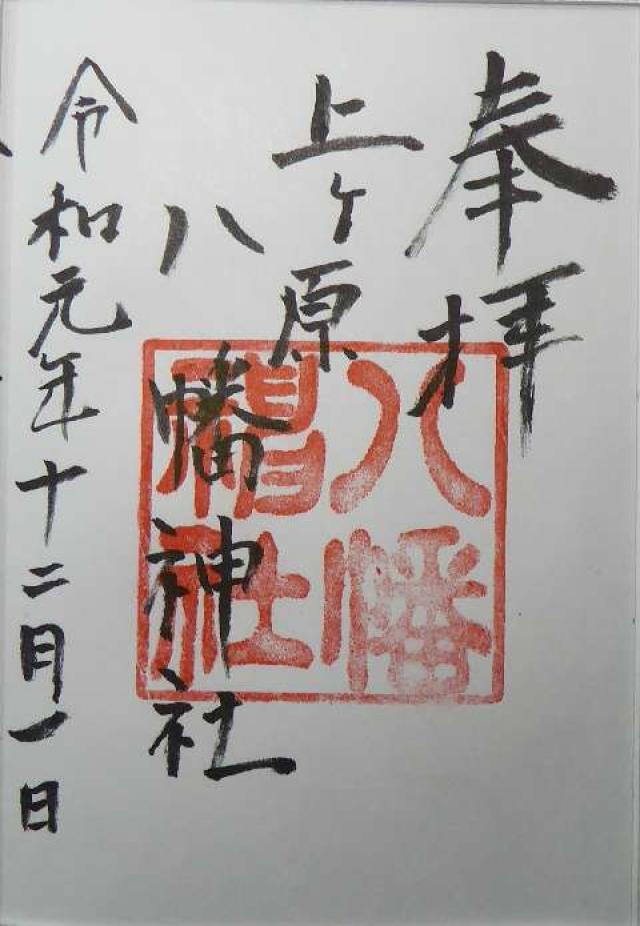 奉拝
上ケ原
八幡神社
令和元年十二月一日
八幡
神社